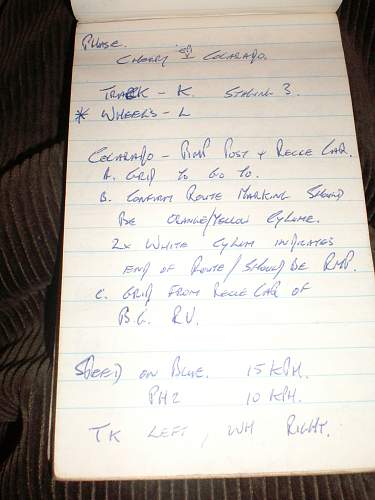 PHASE.
CHERRY & COLARADO.
TRACK - K STALIN 3.
* WHEELS - L
COLARADO - RMP POST + RECCE CAR.
A. GRID TO GO TO.
B. CONFIRM ROUTE MARKING SHOULD
BE ORANGE/YELLOW CYLUME.
2x WHITE CYLUM INDICATES
END OF ROUTE / SHOULD BE RMP.
C. GRID FROM RECCE CAR OF
B.G. RV.
SPEED ON BLUE. 15 KPH.
PH2 10 KPH.
TK LEFT, WH RIGHT.